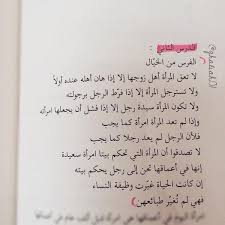 الدرس الثاني :
الفرس من الخيّال
لا تعق المرأة أهل زوجها إلا إذا هان أهله عنده أولاً
ولا تسترجل المرأة إلا إذا فرّط الرجل برجولته
ولا تكون المرأة سيدة رجل إلا إذا فشل أن يجعلها امرأته
وإذا لم تعد المرأة امرأة كما يجب
فلأن الرجل لم يعد رجلا كما يجب
لا تصدقوا أن المرأة التي تحكم بيتا امرأة سعيدة
إنها في أعماقها تحن إلى رجل يحكم بيته
إن كانت الحياة غيّرت وظيفة النساء
فهي لم تُغيّر طبائعهن